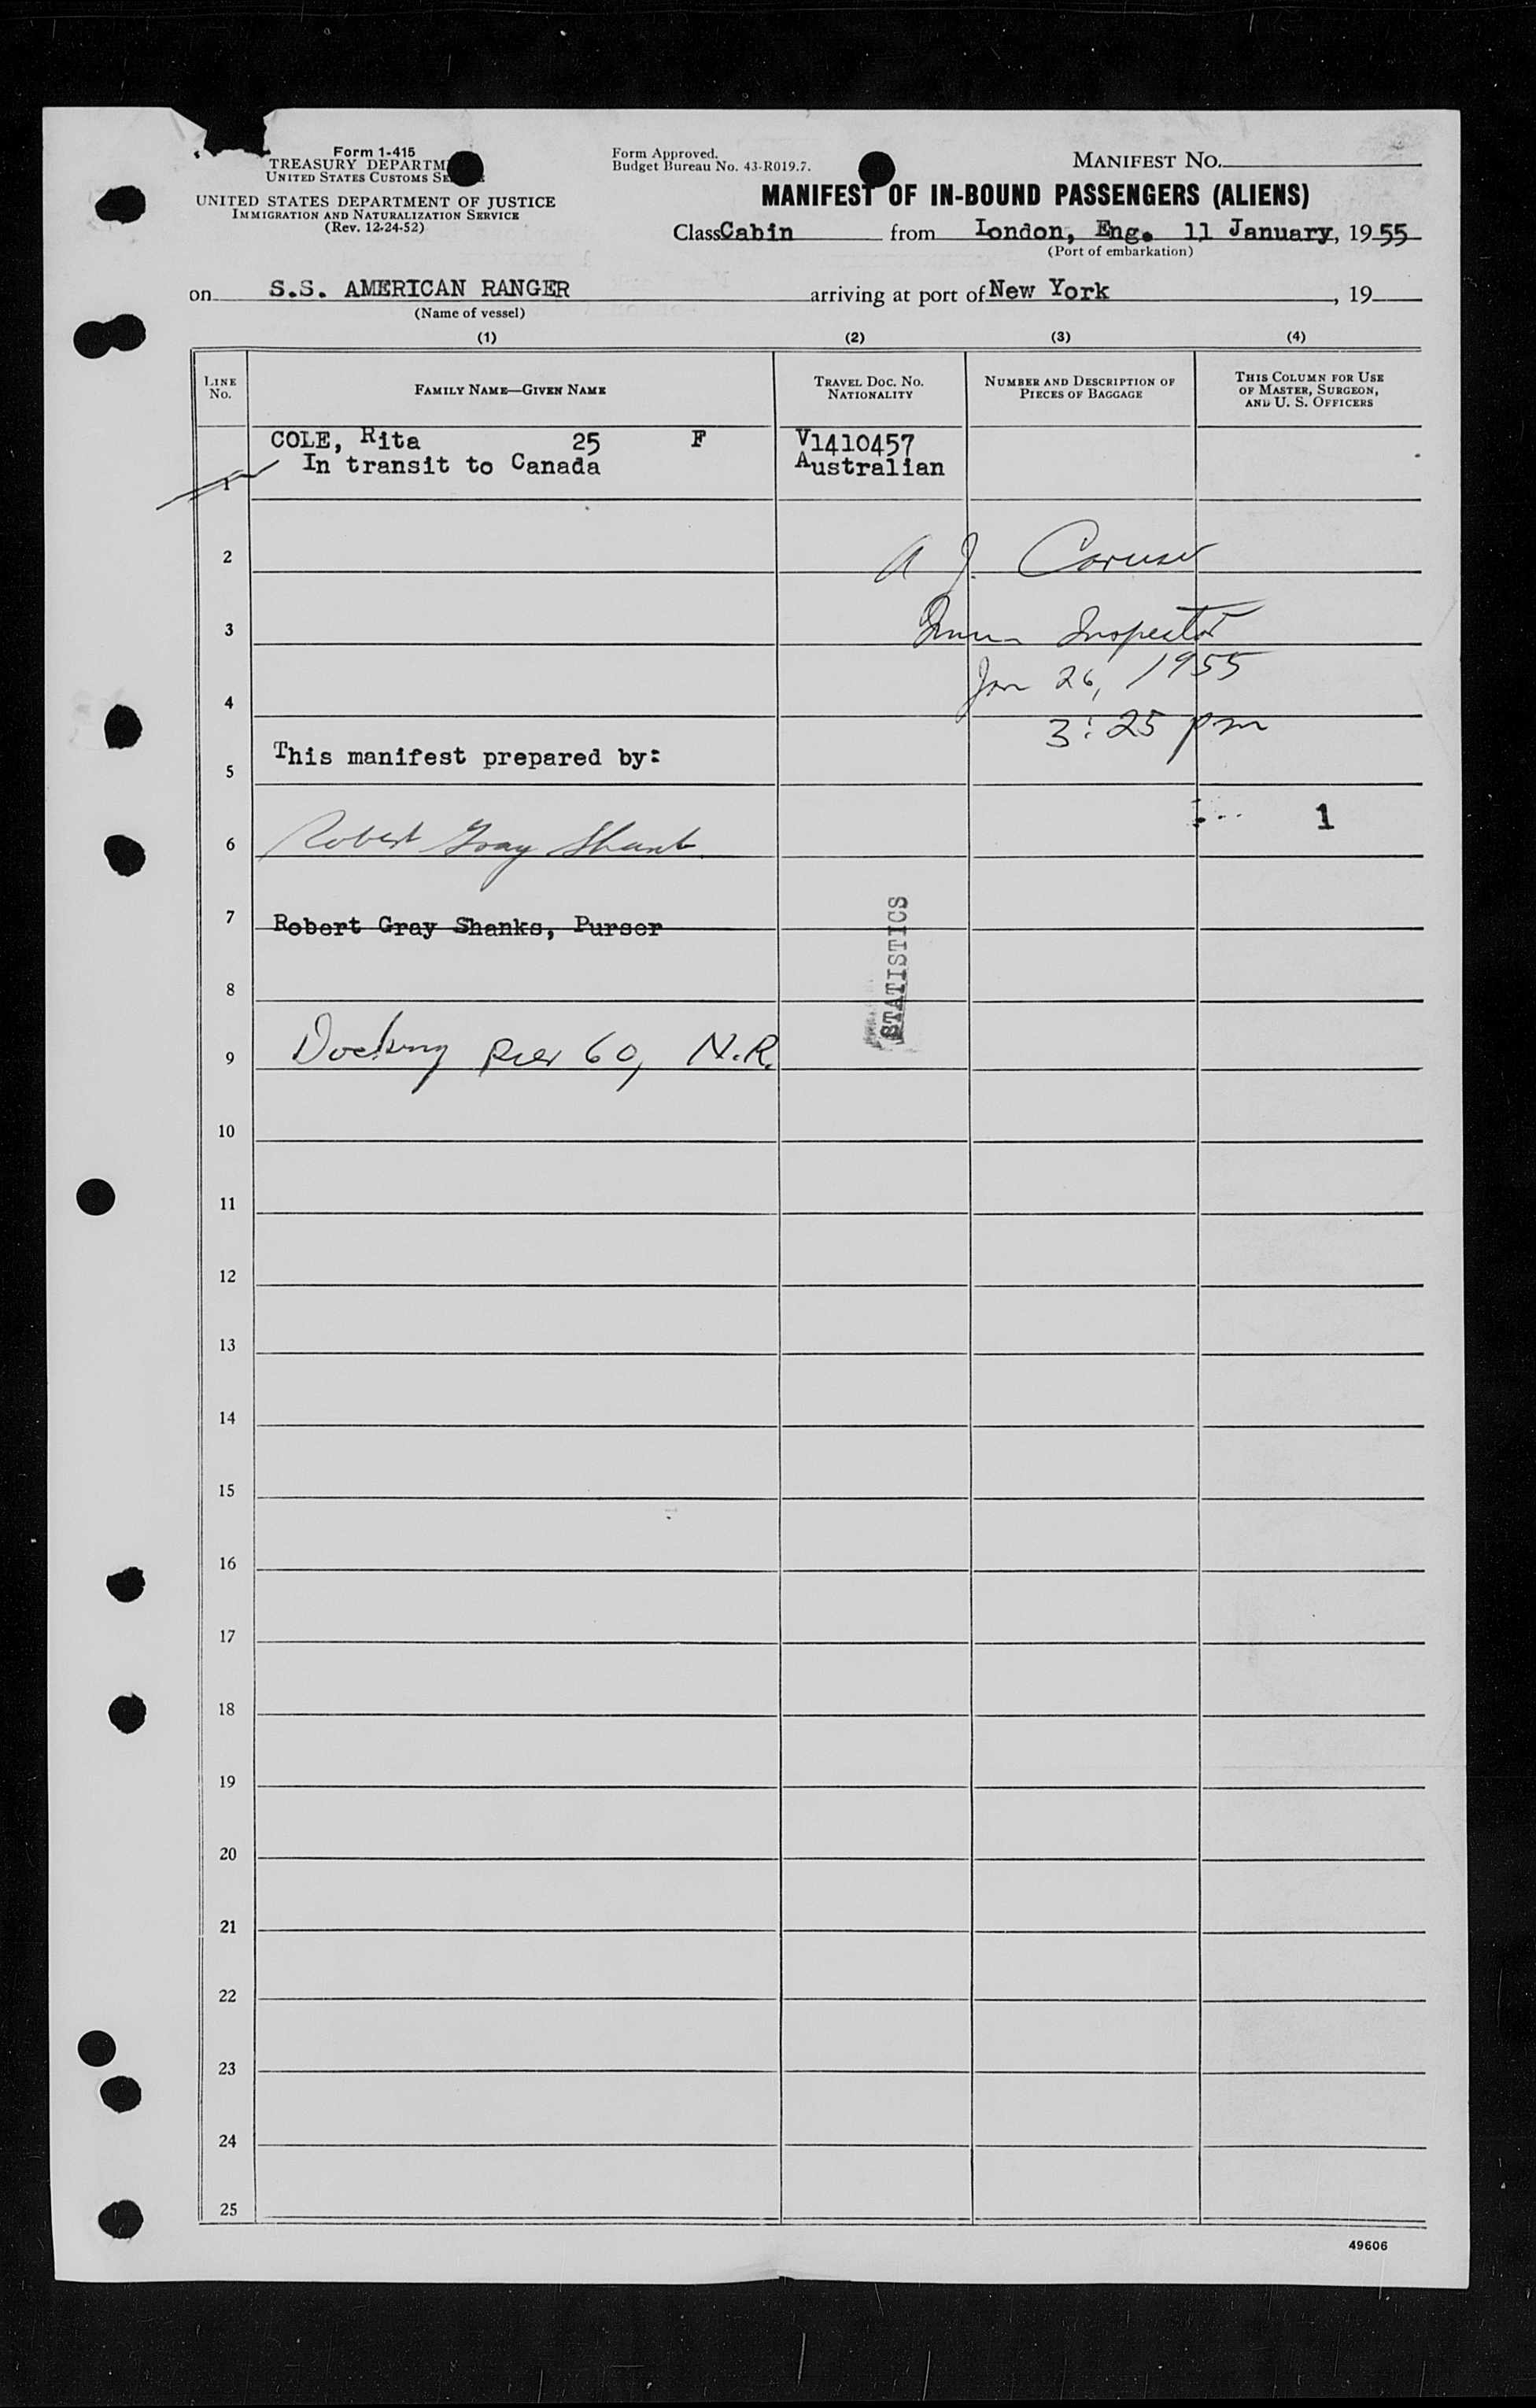 Form 1-415
TREASURY DEPARTM
UNITED STATES CUSTOMS SE
UNITED STATES DEPARTMENT OF JUSTICE
IMMIGRATION AND NATURALIZATION SERVICE
(Rev. 12-24-52)
Form Approved.
Budget Bureau No. 43-R019.7.
MANIFEST NO.
MANIFEST OF IN-BOUND PASSENGERS (ALIENS)
Class Cabin from London, Eng. 11 January, 1955
(Port of embarkation)
on S.S. AMERICAN RANGER arriving at port of New York, 19
(Name of vessel)
(1) (2) (3) (4)
LINE NO.
FAMILY NAME—GIVEN NAME
TRAVEL DOC. NO.
NATIONALITY
NUMBER AND DESCRIPTION OF
PIECES OF BAGGAGE
THIS COLUMN FOR USE
OF MASTER, SURGEON,
AND U. S. OFFICERS
COLE, Rita 25 F V1410457
In transit to Canada Australian
1
2 A J. Caruso
3 Imm Inspector
Jan 26, 1955
4
3:25 pm
This manifest prepared by:
5
1
6 Robert Gray Shanks
7 Robert Gray Shanks, Purser
STATISTICS
8
9 Docking Pier 60, N.R.
10
11
12
13
14
15
16
17
18
19
20
21
22
23
24
25
49606